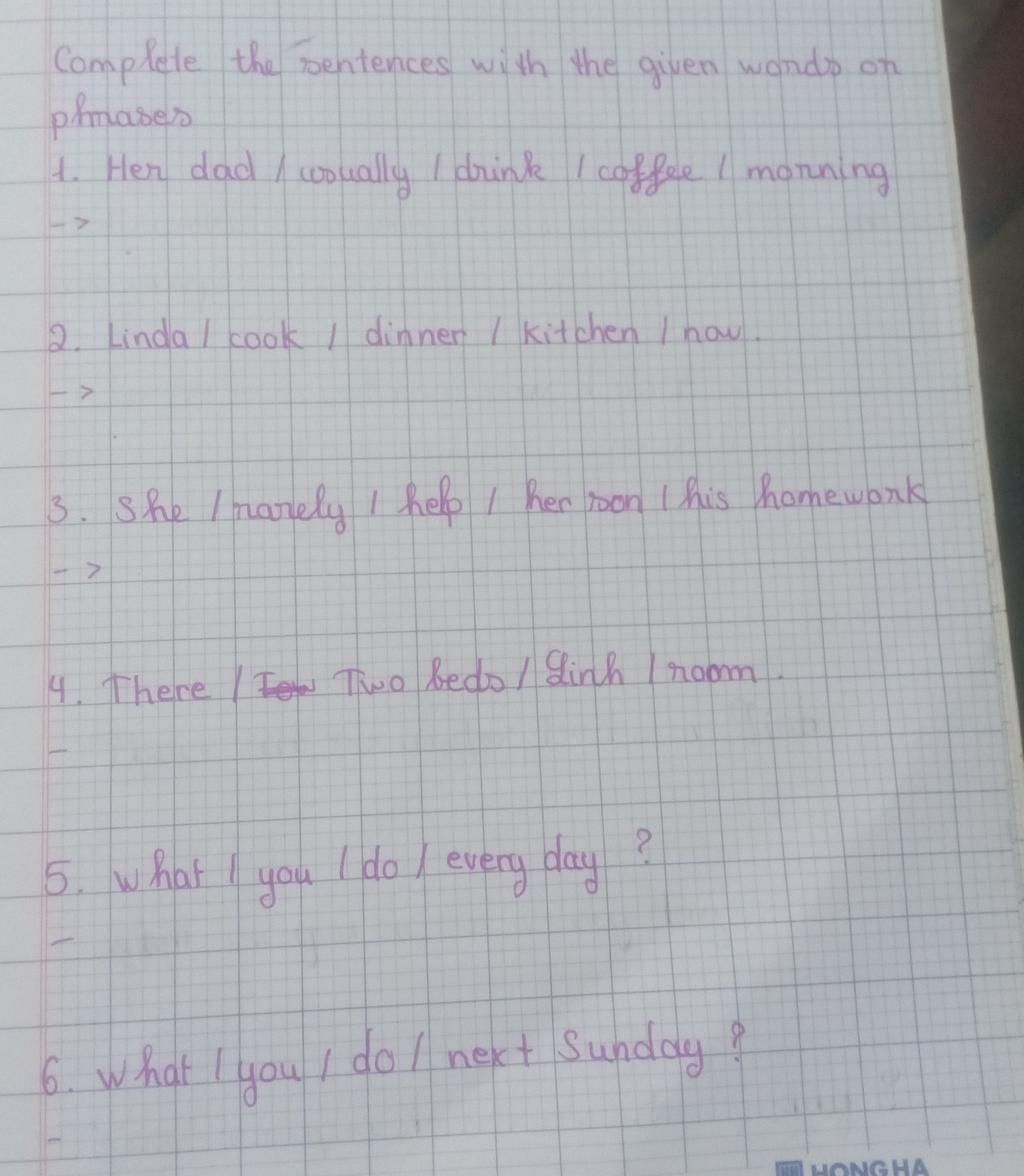 Complete the sentences with the given words or
phrases
1. Her dad / usually / drink / coffee / morning
->
2. Linda / cook / dinner / kitchen / now.
->
3. She / rarely / help / her son / his homework
->
4. There / Two beds / Linh / room.
-
5. What / you / do / every day ?
-
6. What / you / do / next Sunday ?
-
HONG HA